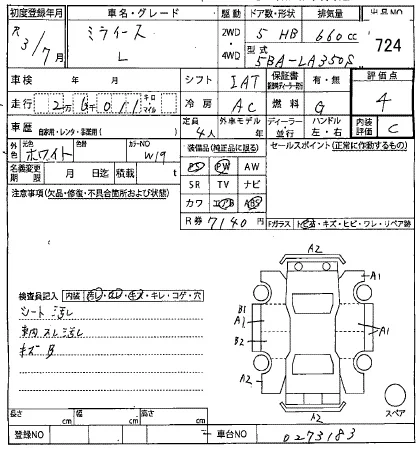 初度登録年月 車名・グレード 駆動 ドア数・形状 排気量 出品NO
R 3/7月 ミライース L 2WD・4WD 5 HB 660cc 724
型式 5BA-LA350S
車検 年 月 シフト IAT 保証書 有・無 評価点
走行 2万 千011 キロ マイル 冷房 AC 燃料 G 4
車歴 自家用・レンタ・事業用( ) 定員 4人 外車モデル年 ディーラー・並行 ハンドル 左・右 内装評価 C
外色 元色 ホワイト 色替 カラーNO W19
装備品(純正品に限る) セールスポイント(正常に作動するもの)
名義変更期限 月 日迄 積載 t
PS PW AW
SR TV ナビ
カワ エアB ABS
R券 7140円
注意事項(欠品・修復・不具合箇所および状態)
Fガラス トビ石・キズ・ヒビ・ワレ・リペア跡
A2
A1
B1
A1
B2
A1
A2
A2
スペア
検査員記入 内装 汚レ・コレ・キズ・キレ・コゲ・穴
シート 汚レ
車内 スレ 汚レ
キズ B
長さ cm 幅 cm 高さ cm
登録NO 車台NO 0273183